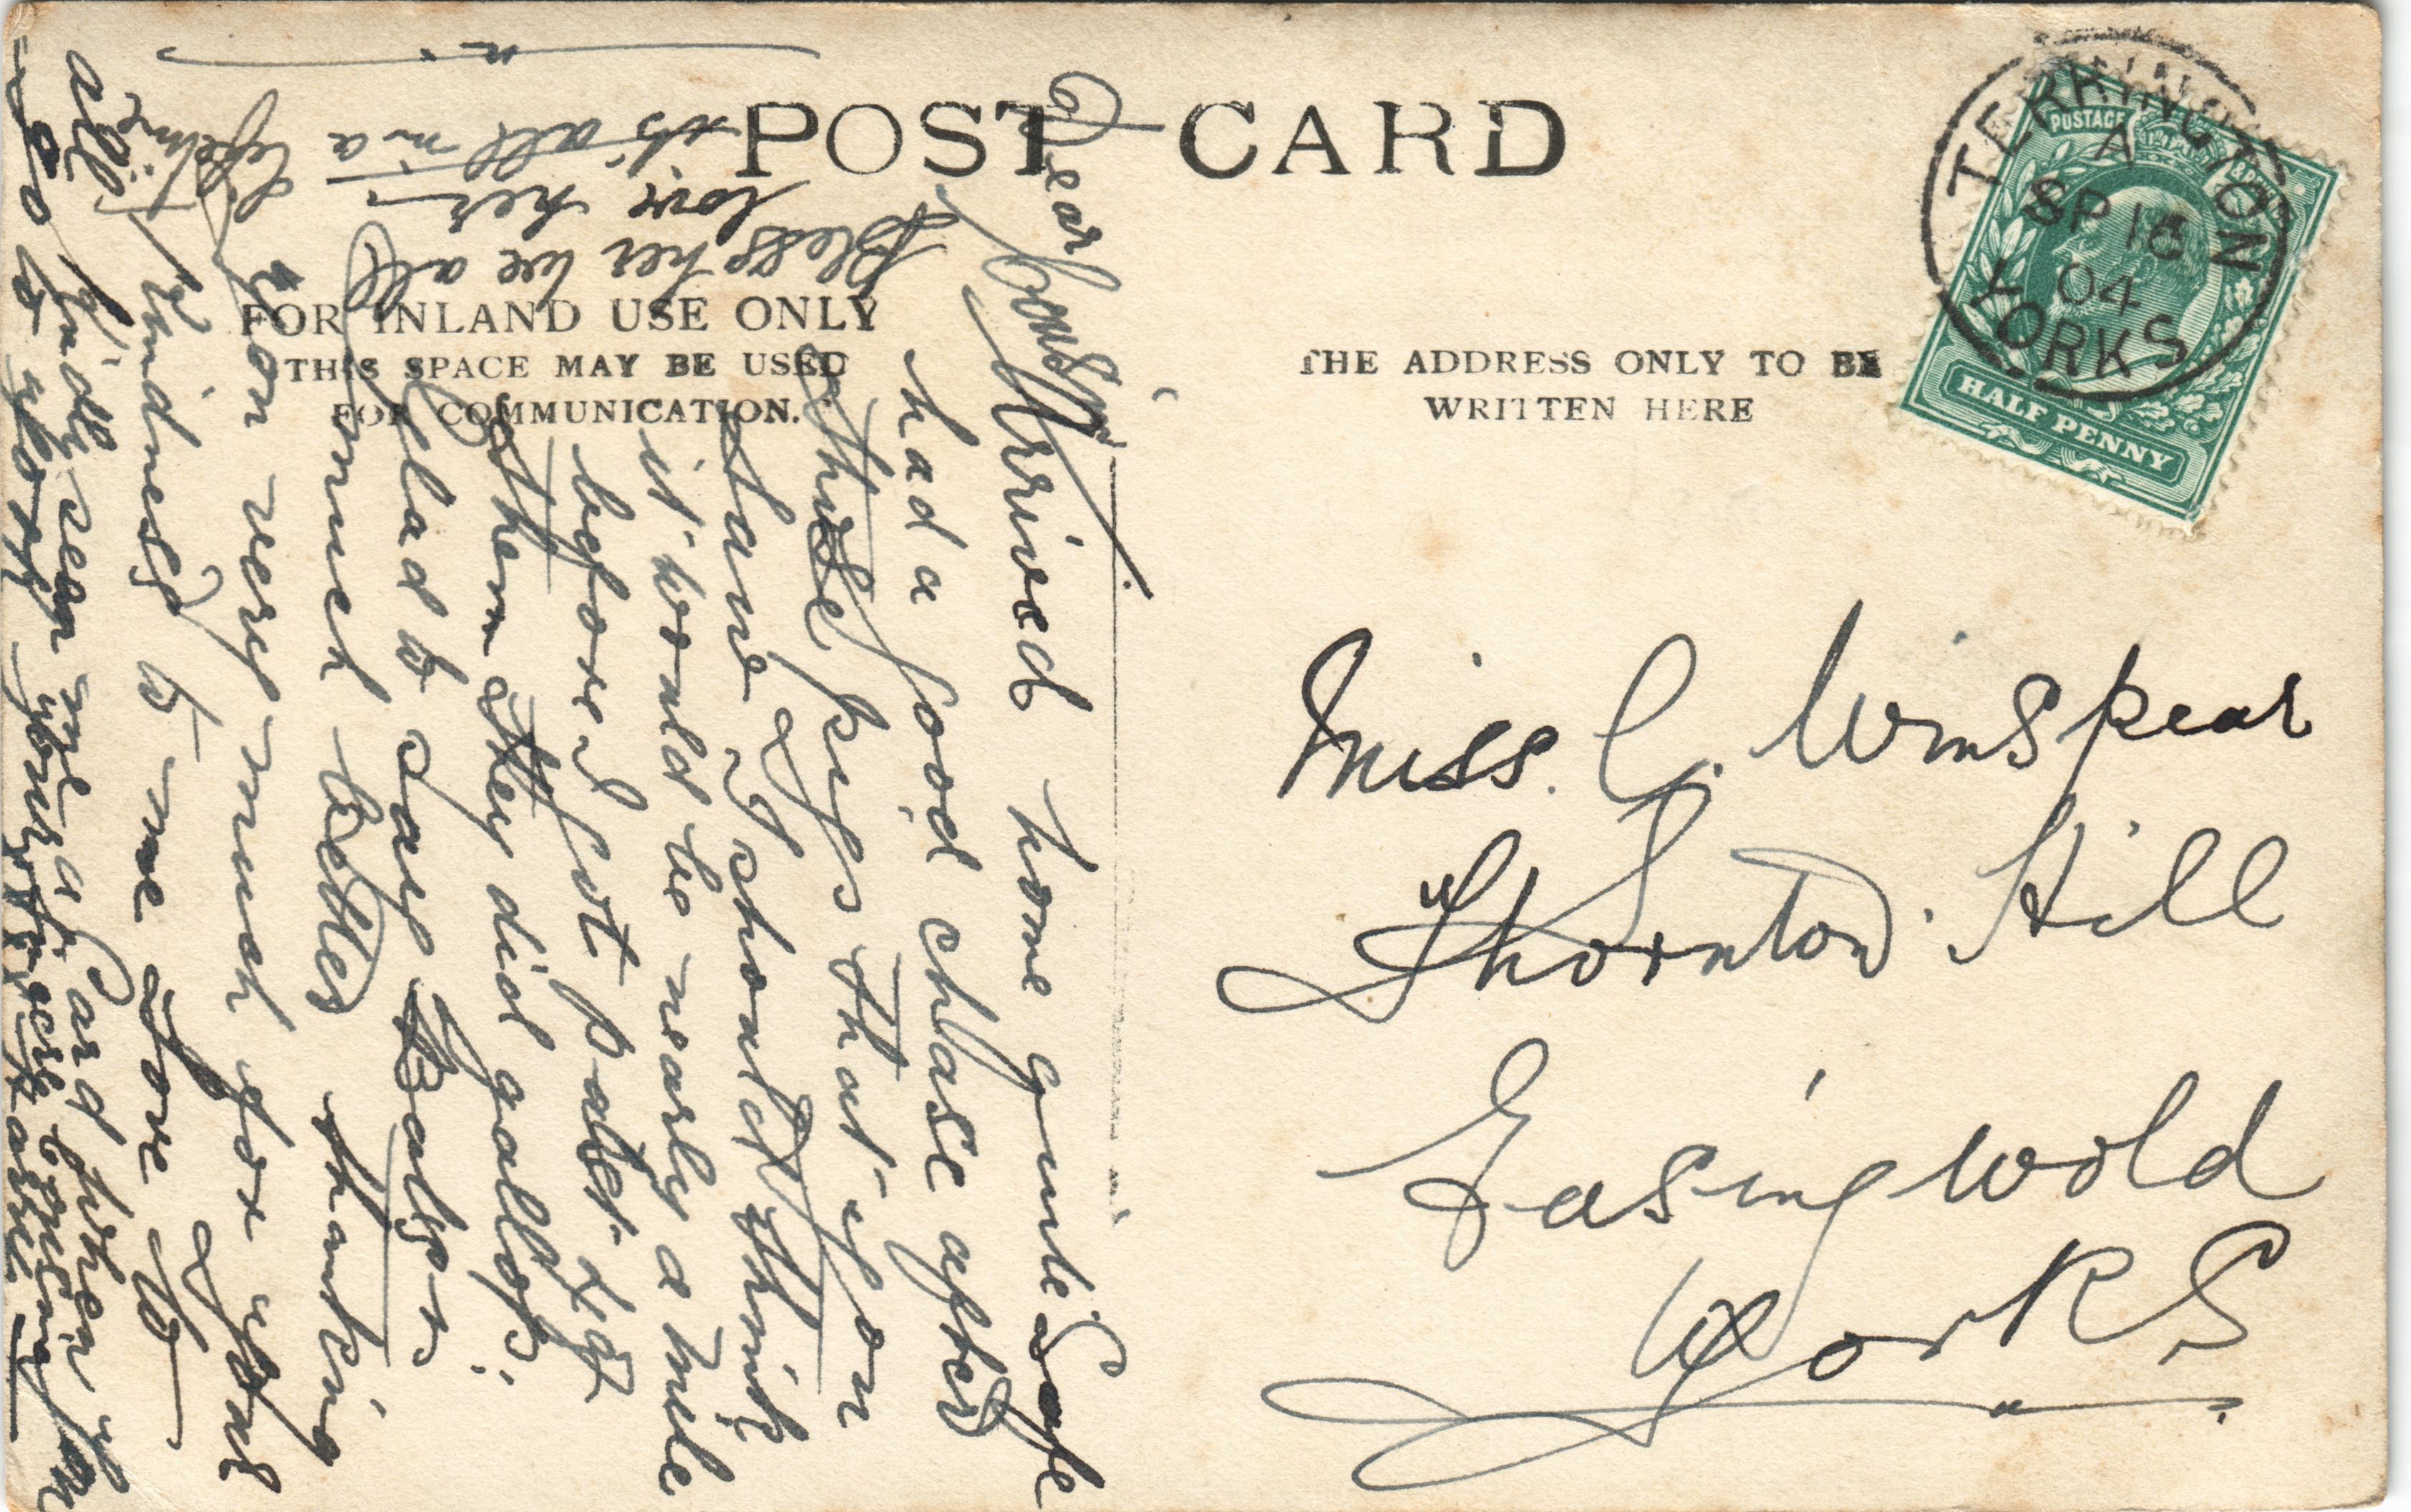 POST CARD
FOR INLAND USE ONLY
THIS SPACE MAY BE USED
FOR COMMUNICATION.
THE ADDRESS ONLY TO BE
WRITTEN HERE
TERRINGTON
A
SP 16
04
YORKS
POSTAGE
HALF PENNY
Miss. C. Winspear
Thornton Hill
Easingwold
Yorks
Dear Cousin
Arrived home quite Safe
had a good chase after
those pigs that' you
have I should think
it would be nearly a mile
before I got past
them They did gallop.
Glad to say is
much better thanking
you very much for your
kindness to me Love to
all kindly send me a P. Card when you
go to
Bless her we all
love her
it's all in a
lifetime